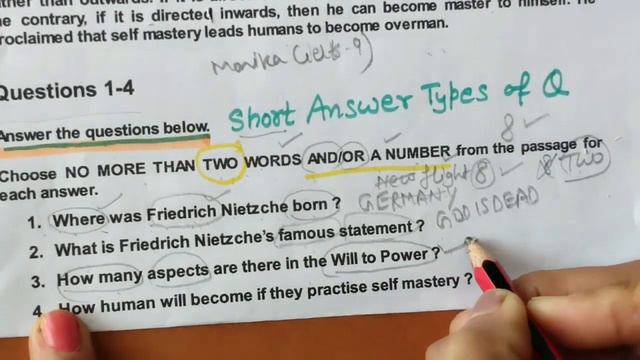 contrary, if it is directed inwards, then he can become master to himself. He
proclaimed that self mastery leads humans to become overman.
Monika (ielts-9)
Questions 1-4
Short Answer Types of Q
Answer the questions below.
8
Choose NO MORE THAN TWO WORDS AND/OR A NUMBER from the passage for
each answer.
flight 8 8 TWO
1. Where was Friedrich Nietzche born ? GERMANY
2. What is Friedrich Nietzche's famous statement ? GOD IS DEAD
3. How many aspects are there in the Will to Power ?
4. How human will become if they practise self mastery ?